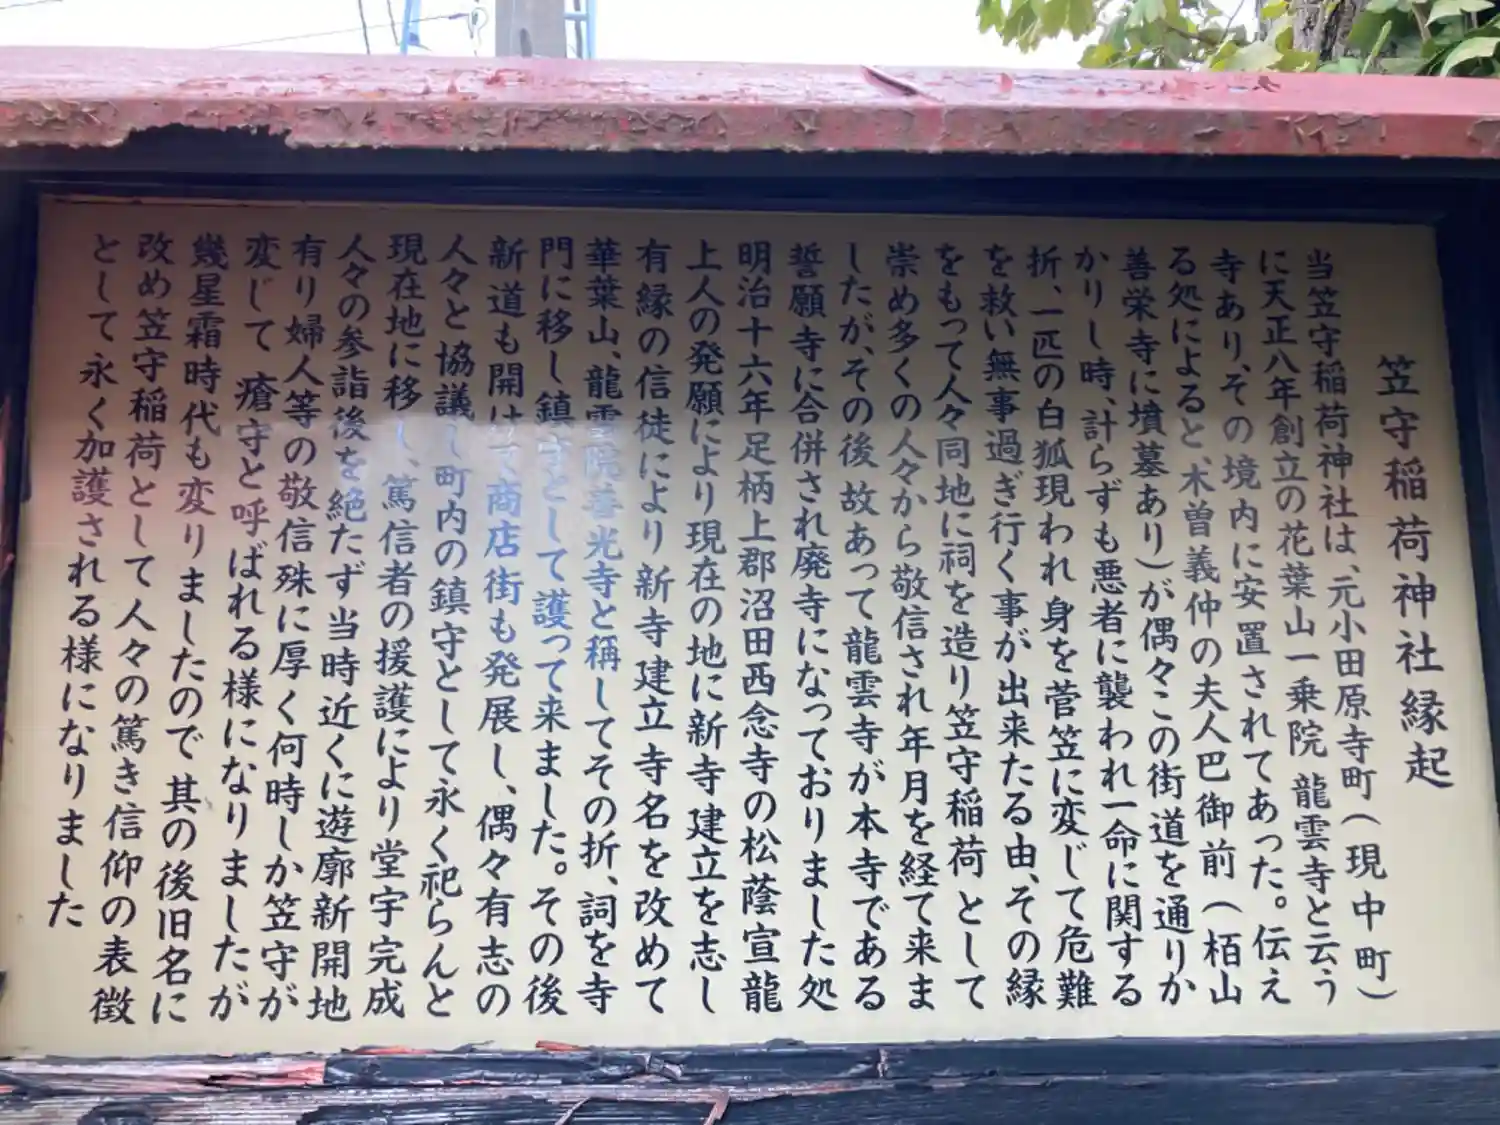 笠守稲荷神社縁起
当笠守稲荷神社は、元小田原寺町(現中町)
に天正八年創立の花葉山一乗院 龍雲寺と云う
寺あり、その境内に安置されてあった。伝え
る処によると、木曽義仲の夫人巴御前(栢山
善栄寺に墳墓あり)が偶々この街道を通りか
かりし時、計らずも悪者に襲われ一命に関する
折、一匹の白狐現われ身を菅笠に変じて危難
を救い無事過ぎ行く事が出来たる由、その縁
をもって人々同地に祠を造り笠守稲荷として
崇め多くの人々から敬信され年月を経て来ま
したが、その後故あって龍雲寺が本寺である
誓願寺に合併され廃寺になっておりました処
明治十六年足柄上郡沼田西念寺の松蔭宣龍
上人の発願により現在の地に新寺建立を志し
有縁の信徒により新寺建立寺名を改めて
華葉山、龍雲院善光寺と稱してその折、詞を寺
門に移し鎮守として護って来ました。その後
新道も開けて商店街も発展し、偶々有志の
人々と協議し町内の鎮守として永く祀らんと
現在地に移し、篤信者の援護により堂宇完成
人々の参詣後を絶たず当時近くに遊廓新開地
有り婦人等の敬信殊に厚く何時しか笠守が
変じて 瘡守と呼ばれる様になりましたが
幾星霜時代も変りましたので其の後旧名に
改め笠守稲荷として人々の篤き信仰の表徴
として永く加護される様になりました